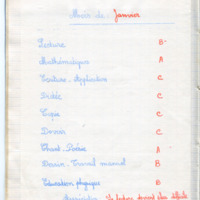 Mois de : Janvier
Lecture B-
Mathématiques A
Ecriture - Application C
Dictée C
Copie C
Devoir C
Chant - Poésie A
Dessin - Travail manuel B
Education physique B
Appréciation : La lecture devient plus difficile